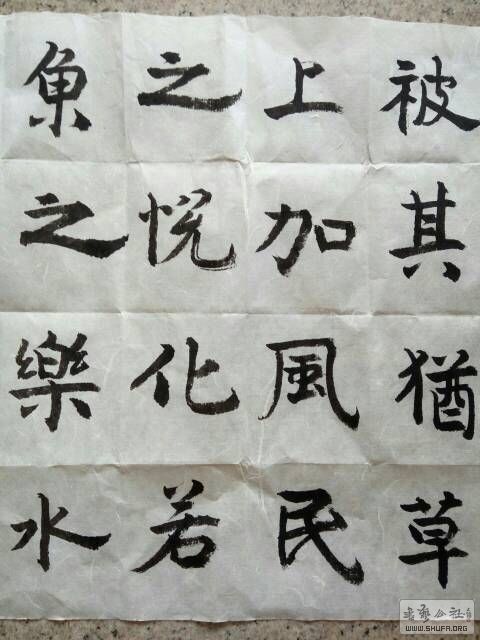 被其猶草
上加風民
之悅化若
魚之樂水
书艺公社
WWW.SHUFA.ORG